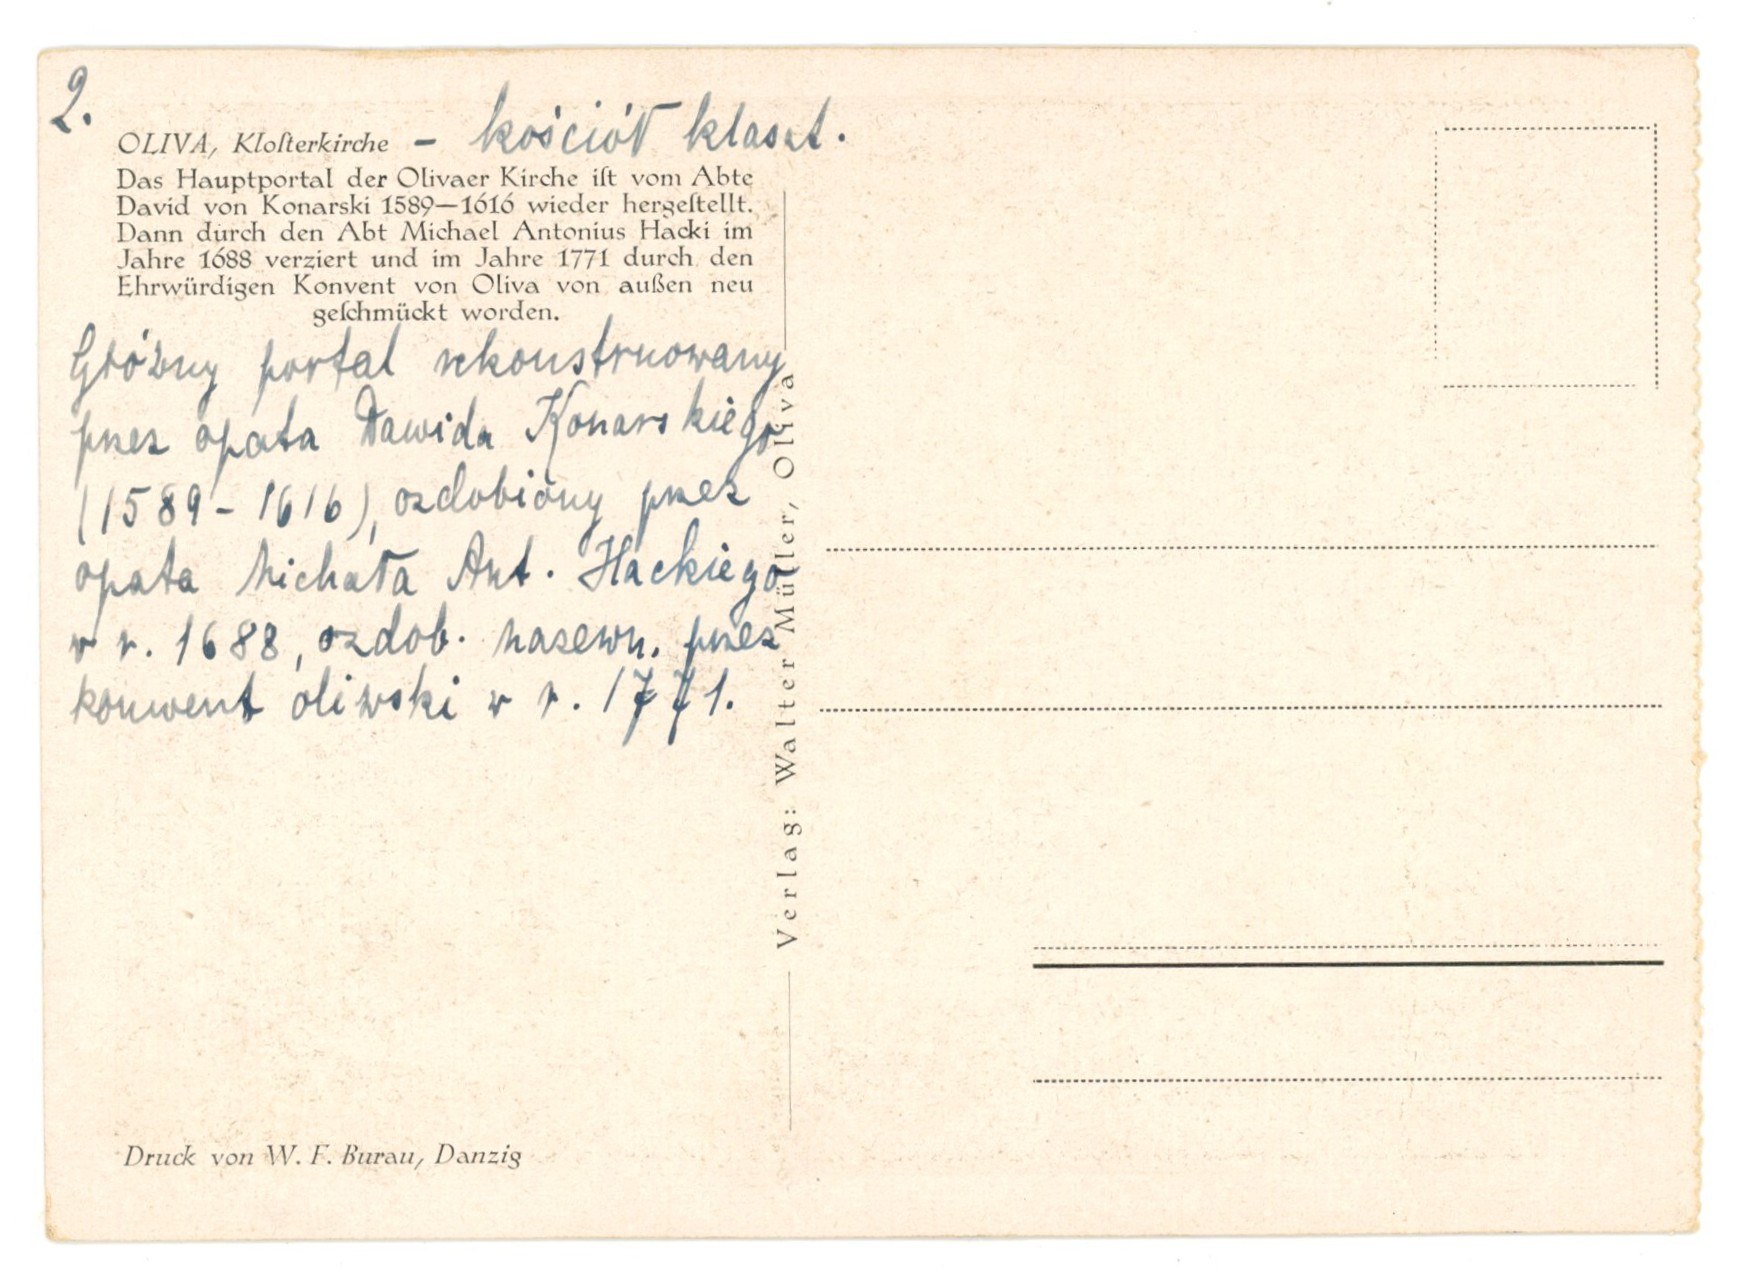 2.
OLIVA, Kloſterkirche – kościół klaszt.
Das Hauptportal der Olivaer Kirche iſt vom Abte
David von Konarski 1589—1616 wieder hergeſtellt.
Dann durch den Abt Michael Antonius Hacki im
Jahre 1688 verziert und im Jahre 1771 durch den
Ehrwürdigen Konvent von Oliva von außen neu
geſchmückt worden.
Główny portal rekonstruowany
przez opata Dawida Konarskiego
(1589 - 1616), ozdobiony przez
opata Michała Ant. Hackiego
w r. 1688, ozdob. nazewn. przez
konwent oliwski w r. 1771.
Verlag: Walter Müller, Oliva
Druck von W. F. Burau, Danzig